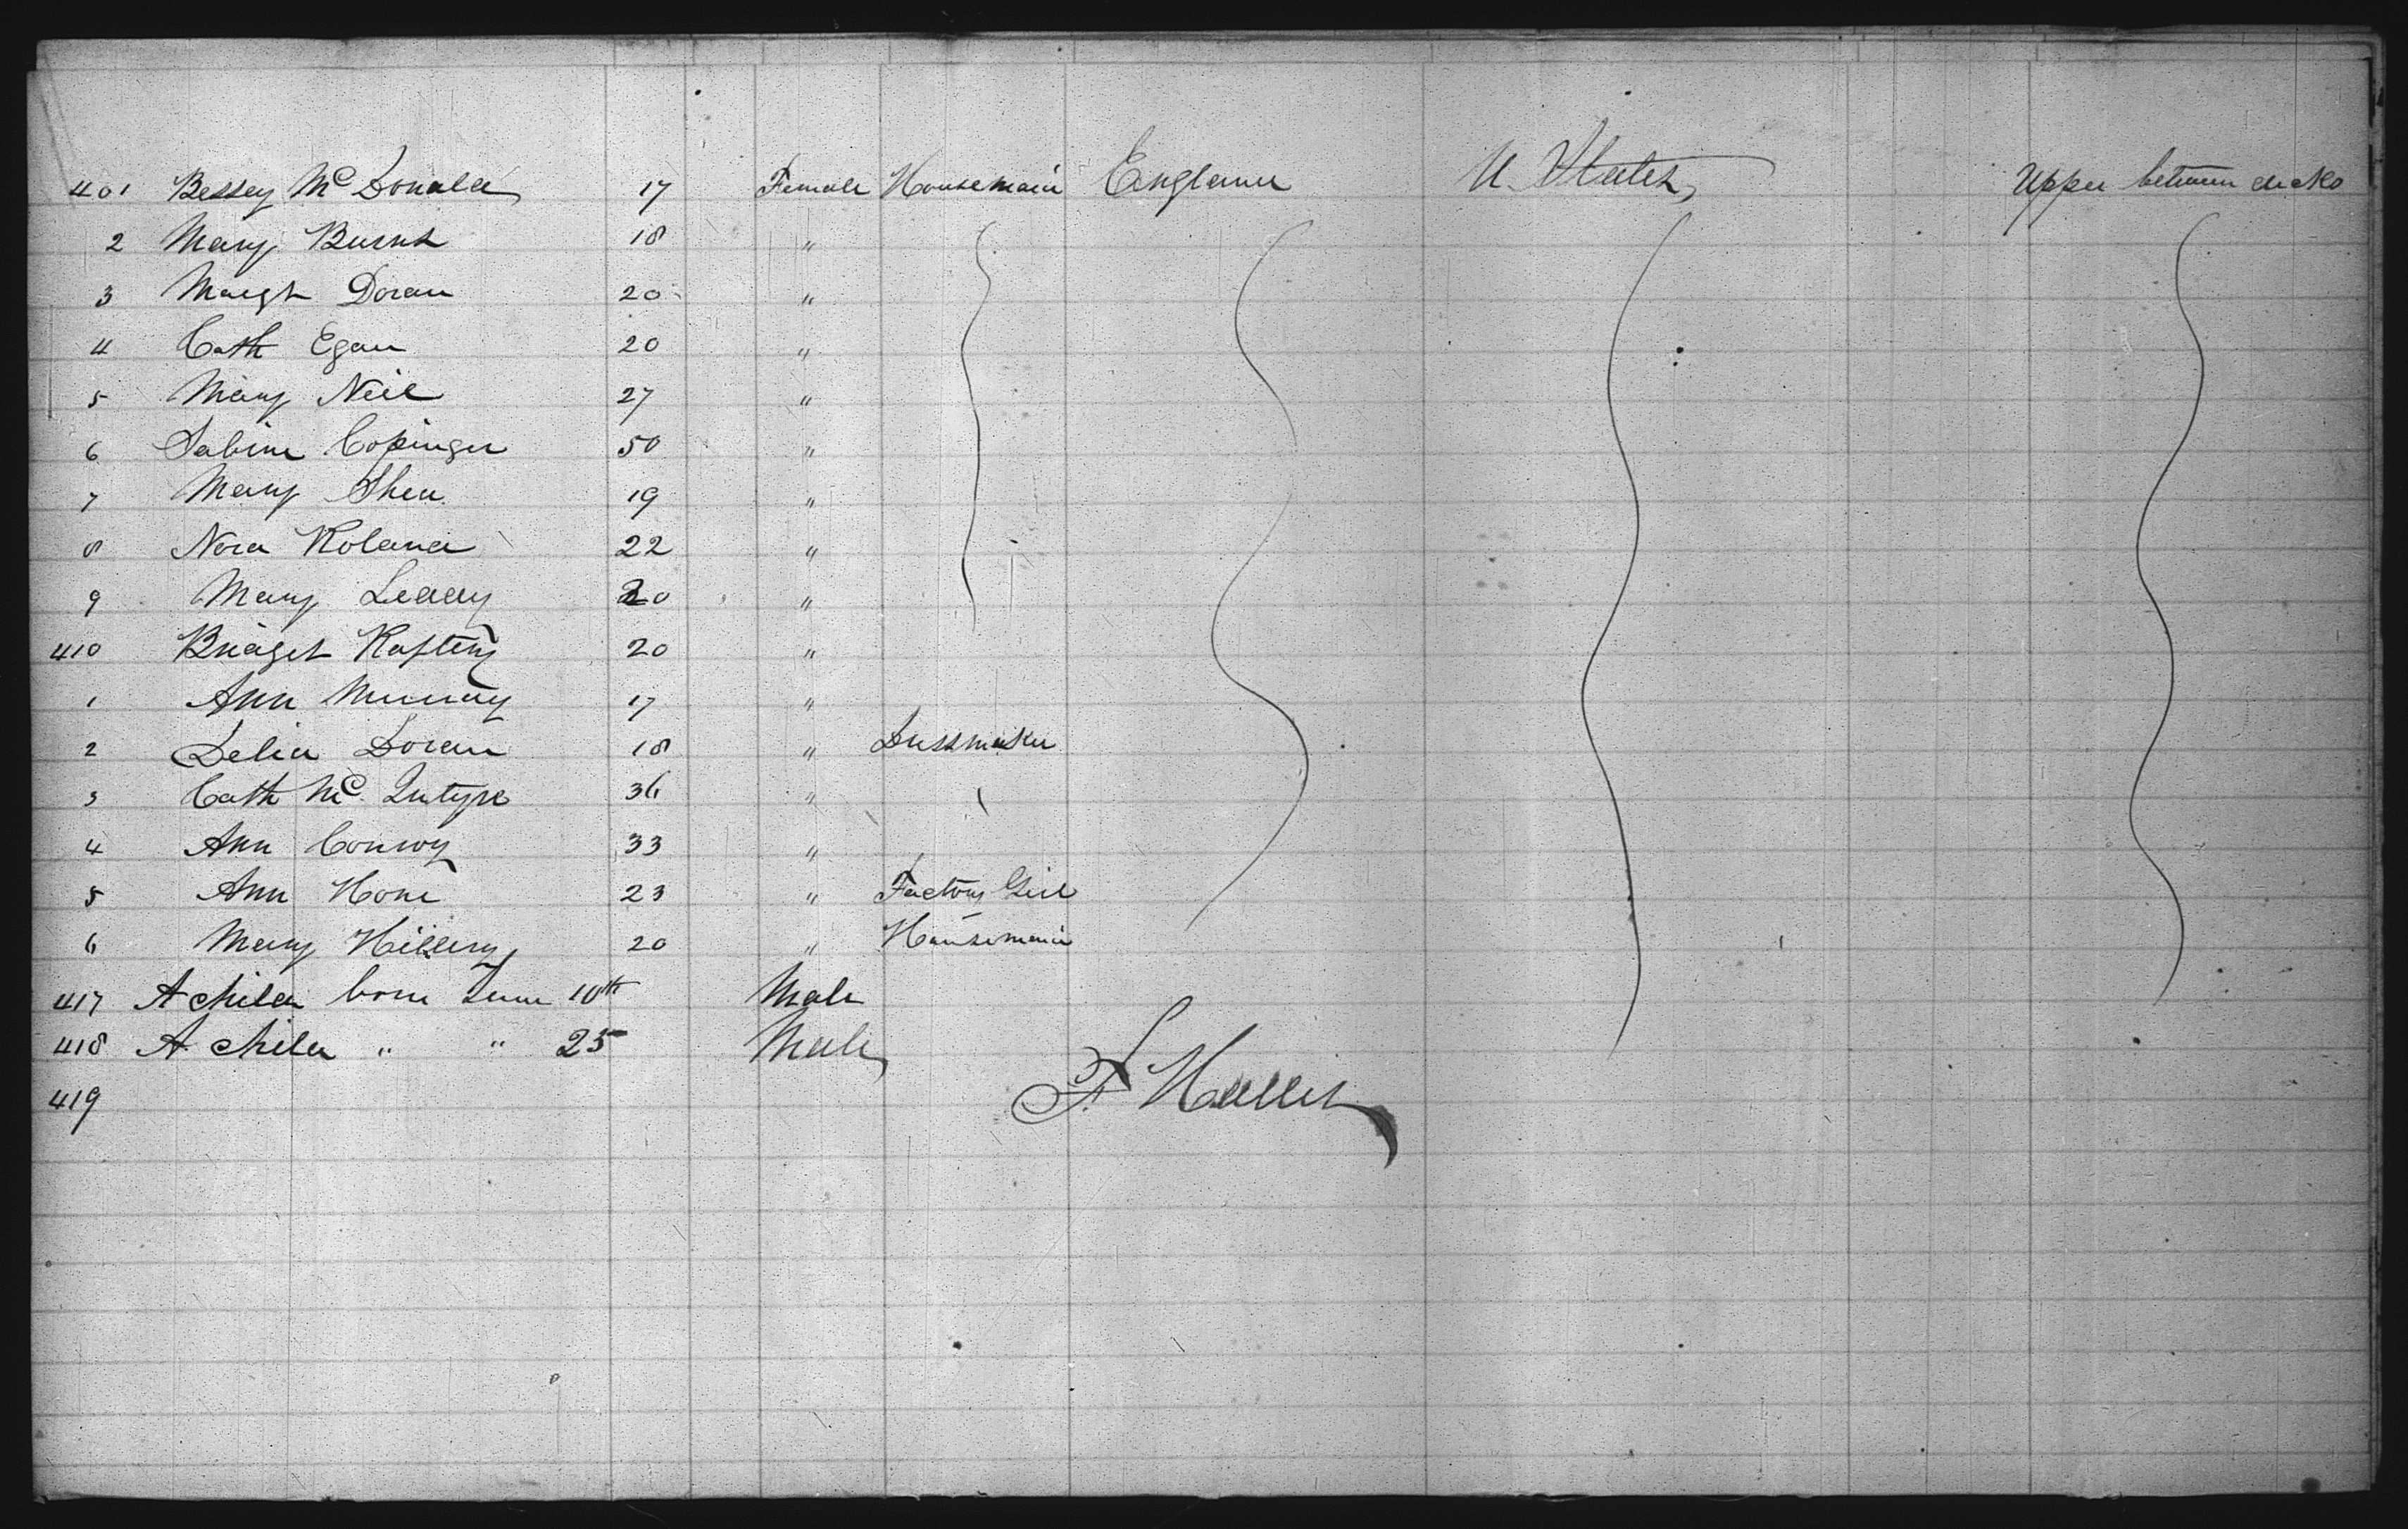 401 Bessey McDonald 17 Female Housemaid England U. States Upper between decks
2 Mary Burns 18 "
3 Margt Doran 20 "
4 Cath Egan 20 "
5 Mary Neil 27 "
6 Sabina Copinger 50 "
7 Mary Shea 19 "
8 Nora Roland 22 "
9 Mary Leddy 20 "
410 Bridget Raftery 20 "
1 Ann Murray 17 "
2 Delia Doran 18 " Dressmaker
3 Cath McIntyre 36 "
4 Ann Conroy 33 "
5 Ann Hone 23 " Factory Girl
6 Mary Hillery 20 " Housemaid
417 A child born June 10th Male
418 A child " " 25 Male
419